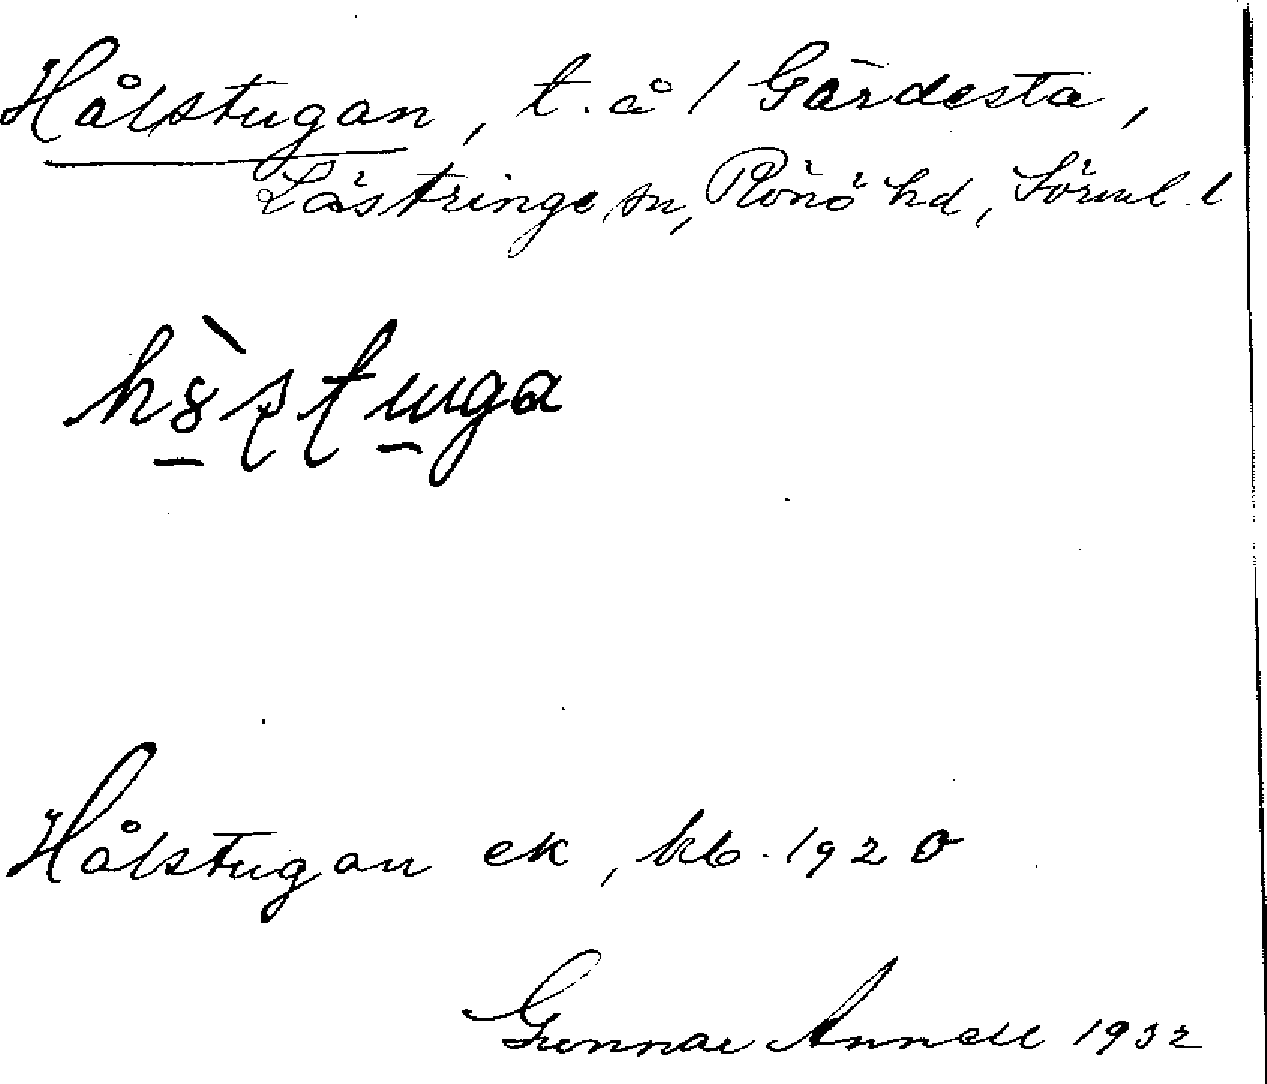 Hålstugan, t. å / Gärdesta,
Lästringe sn, Rönö hd, Sörml. l
Hålstugan ek, kb. 1920
Gunnar Annell 1932